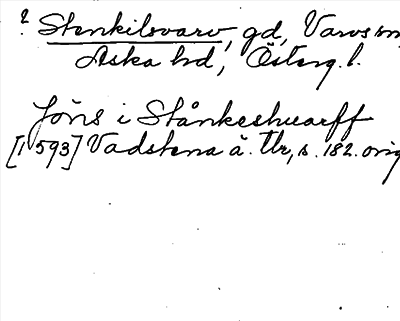 ? Stenkilsvarv, gd, Varvs sn,
Aska hd, Österg. l.
Jöns i Stånkeshuarff
[1593] Vadstena ä. Tb, s. 182. orig